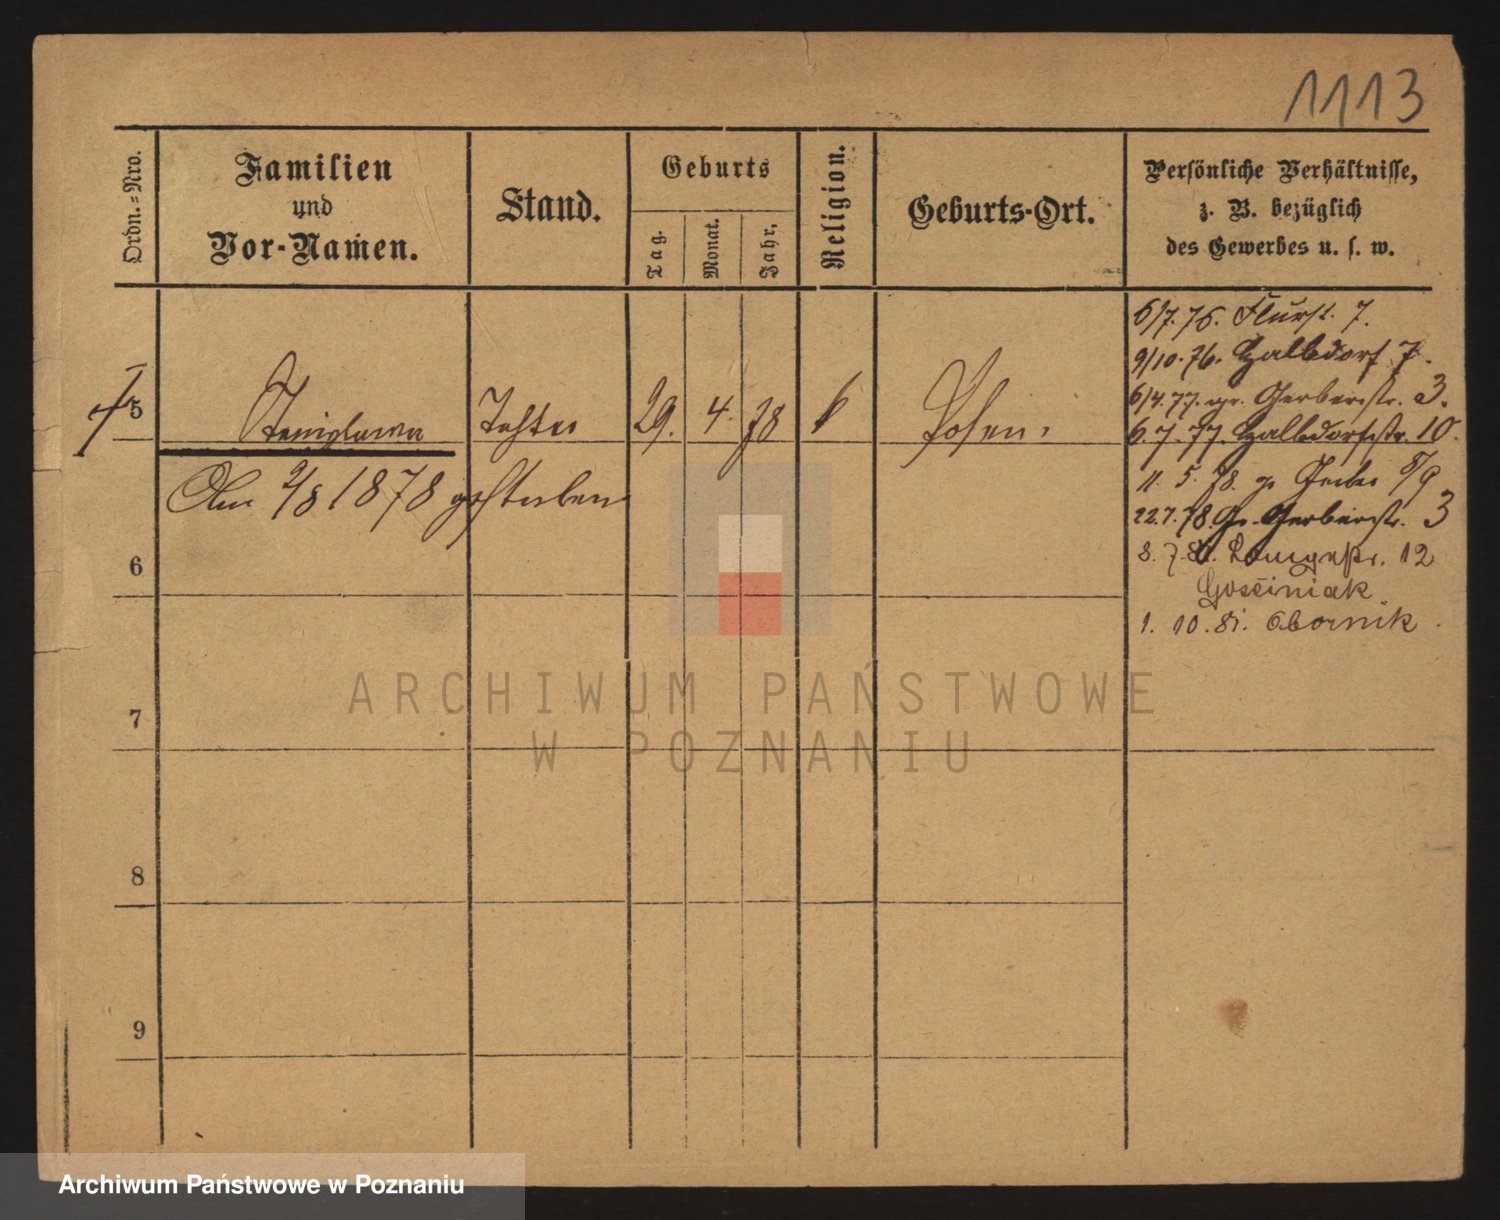 1113
Ordn.=Nro.
Familien
und
Vor-Namen.
Stand.
Geburts
Tag.
Monat.
Jahr.
Religion.
Geburts-Ort.
Persönliche Verhältnisse,
z. B. bezüglich
des Gewerbes u. s. w.
6/7.76. Flurst. 7.
9/10.76. Halbdorf 7.
6/4.77. gr. Gerberstr. 3.
5 Stanislawa Tochter 29. 4. 78 k Posen.
6.7.77. Halbdorfstr. 10.
Am 2/8 1878 gestorben
11. 5. 78. gr Gerber 8/9
22.7.78. Gr. Gerberstr. 3
8. 7. 80. Langestr. 12
6
Gościniak
1. 10. 81. Obornik.
7
8
9
ARCHIWUM PAŃSTWOWE
W POZNANIU
Archiwum Państwowe w Poznaniu